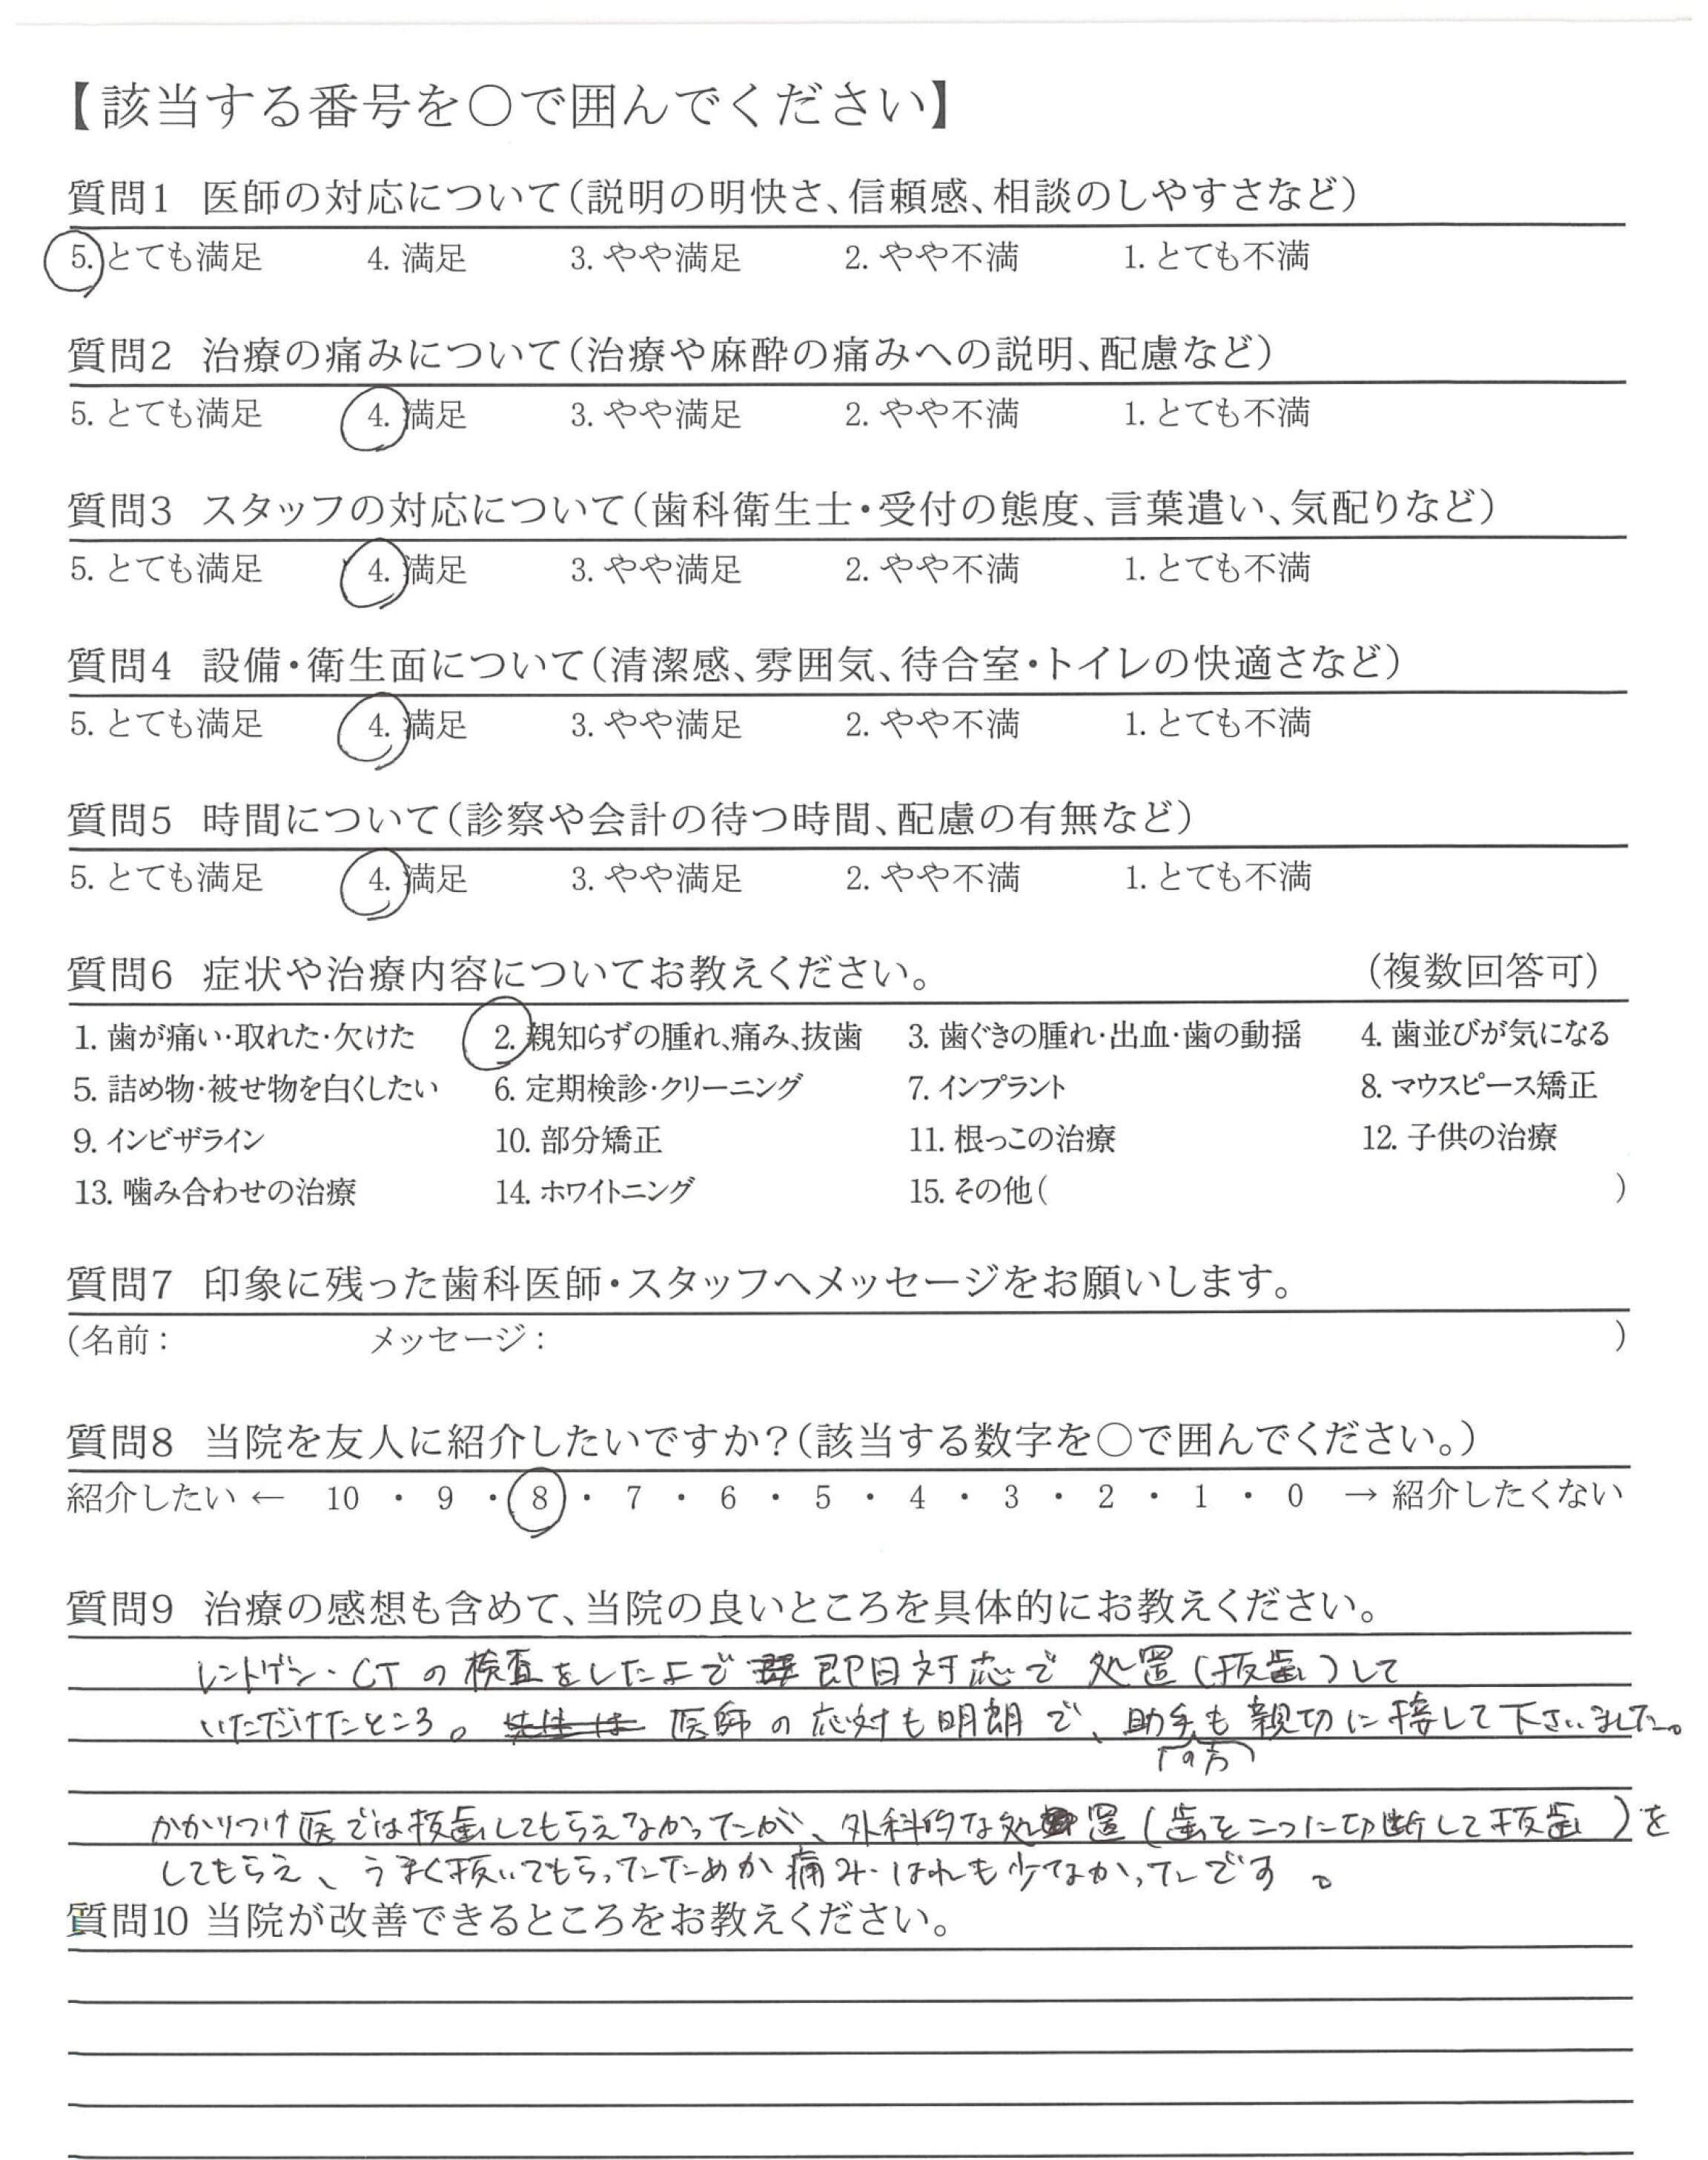 【該当する番号を○で囲んでください】
質問1 医師の対応について(説明の明快さ、信頼感、相談のしやすさなど)
5. とても満足 4. 満足 3. やや満足 2. やや不満 1. とても不満
質問2 治療の痛みについて(治療や麻酔の痛みへの説明、配慮など)
5. とても満足 4. 満足 3. やや満足 2. やや不満 1. とても不満
質問3 スタッフの対応について(歯科衛生士・受付の態度、言葉遣い、気配りなど)
5. とても満足 4. 満足 3. やや満足 2. やや不満 1. とても不満
質問4 設備・衛生面について(清潔感、雰囲気、待合室・トイレの快適さなど)
5. とても満足 4. 満足 3. やや満足 2. やや不満 1. とても不満
質問5 時間について(診察や会計の待つ時間、配慮の有無など)
5. とても満足 4. 満足 3. やや満足 2. やや不満 1. とても不満
質問6 症状や治療内容についてお教えください。 (複数回答可)
1. 歯が痛い・取れた・欠けた 2. 親知らずの腫れ、痛み、抜歯 3. 歯ぐきの腫れ・出血・歯の動揺 4. 歯並びが気になる
5. 詰め物・被せ物を白くしたい 6. 定期検診・クリーニング 7. インプラント 8. マウスピース矯正
9. インビザライン 10. 部分矯正 11. 根っこの治療 12. 子供の治療
13. 噛み合わせの治療 14. ホワイトニング 15. その他( )
質問7 印象に残った歯科医師・スタッフへメッセージをお願いします。
(名前: メッセージ: )
質問8 当院を友人に紹介したいですか?(該当する数字を○で囲んでください。)
紹介したい ← 10 ・ 9 ・ 8 ・ 7 ・ 6 ・ 5 ・ 4 ・ 3 ・ 2 ・ 1 ・ 0 → 紹介したくない
質問9 治療の感想も含めて、当院の良いところを具体的にお教えください。
レントゲン・CTの検査をした上で 即日対応で 処置(抜歯)して
いただけたところ。 医師の応対も明朗で、助手の方も親切に接して下さいました。
かかりつけ医では抜歯してもらえなかったが、外科的な処置(歯を二つに切断して抜歯)を
してもらえ、うまく抜いてもらったためか痛み・はれも少なかったです。
質問10 当院が改善できるところをお教えください。